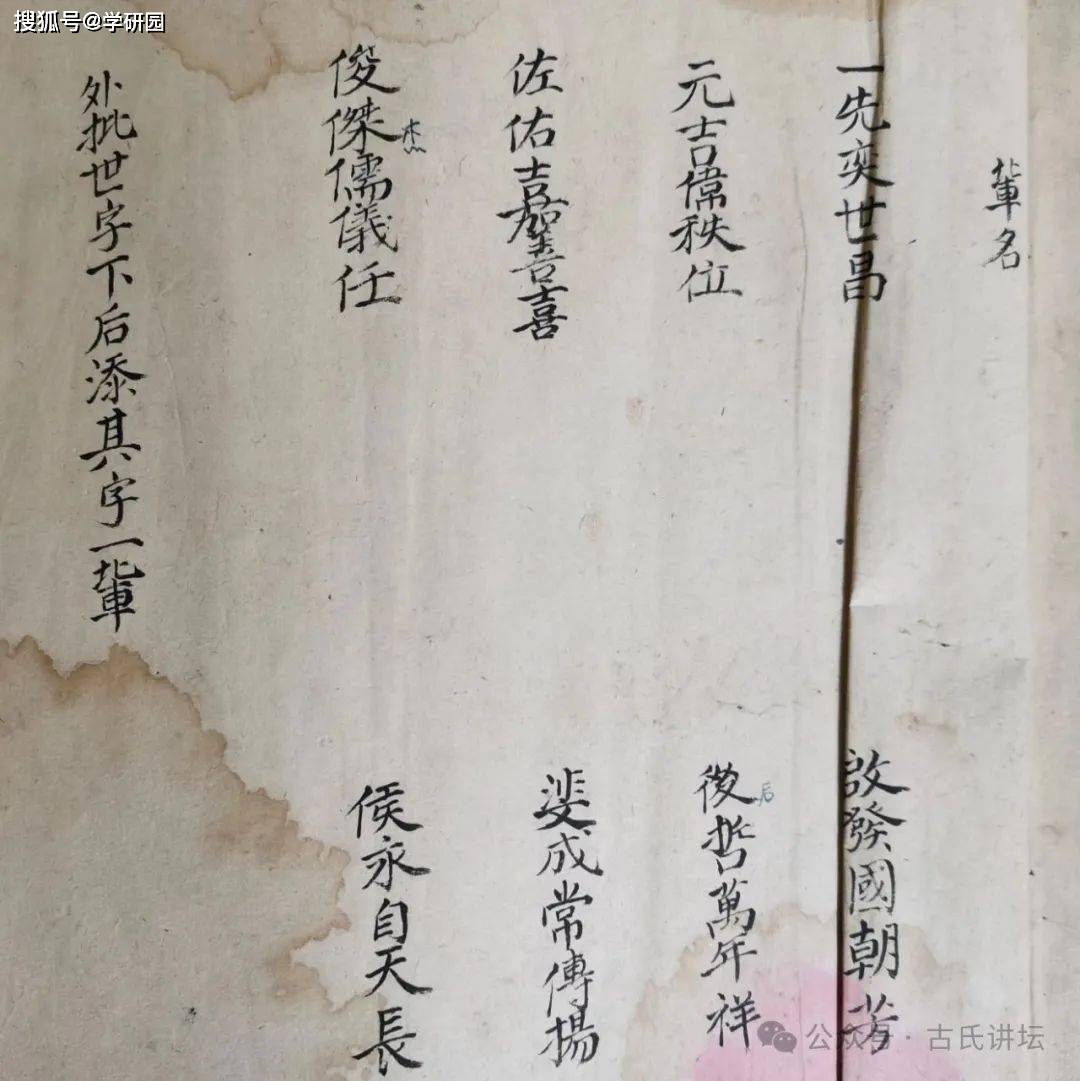 搜狐号@学研园
輩名
一先奕世昌
啟發國朝芳
元吉偉秩位
後哲萬年祥
后
佐佑吉嘉善喜
斐成常傳揚
俊傑儒儀任
杰
侯永自天長
外批世字下后添其字一輩
公众号·古氏讲坛